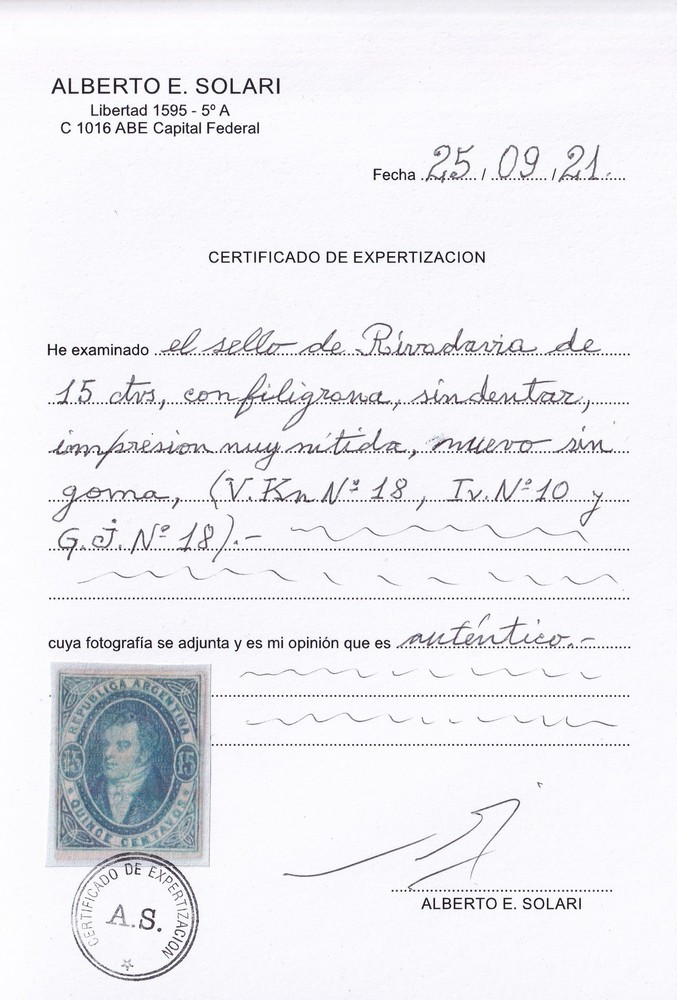 ALBERTO E. SOLARI
Libertad 1595 - 5º A
C 1016 ABE Capital Federal
Fecha 25 / 09 / 21.
CERTIFICADO DE EXPERTIZACION
He examinado el sello de Rivadavia de
15 ctvs, con filigrana, sin dentar,
impresion muy nítida, nuevo sin
goma, (V.Kn Nº 18, Iv. Nº 10 y
G.J. Nº 18).-
cuya fotografía se adjunta y es mi opinión que es auténtico.-
REPUBLICA ARGENTINA
15 15
QUINCE CENTAVOS
ALBERTO E. SOLARI
CERTIFICADO DE EXPERTIZACION
A.S.